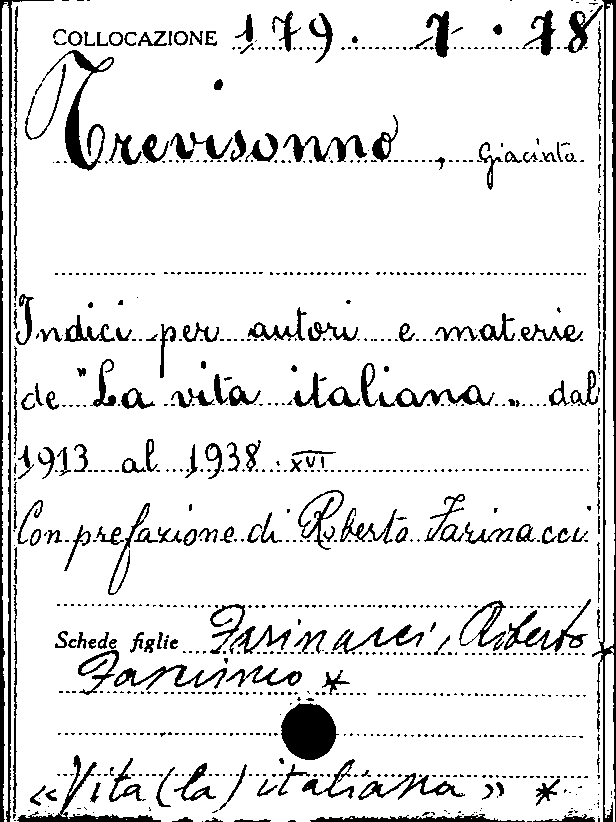 COLLOCAZIONE 179. 7. 78
Trevisonno, Giacinto
Indici per autori e materie
de "La vita italiana" dal
1913 al 1938. XVI
Con prefazione di Roberto Farinacci
Schede figlie Farinacci, Roberto *
Fascismo *
«Vita (la) italiana» *